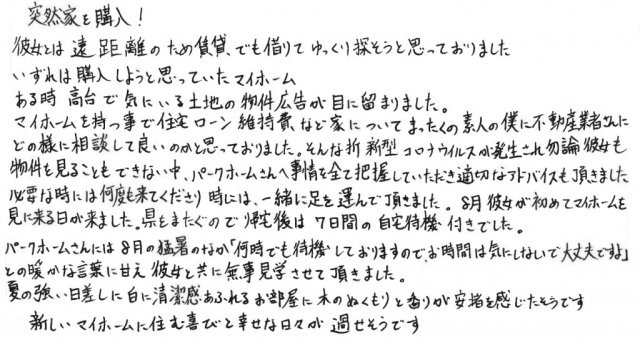 突然家を購入！
彼女とは遠距離のため賃貸、でも借りてゆっくり探そうと思っておりました
いずれは購入しようと思っていたマイホーム
ある時 高台で気にいる土地の物件広告が目に留まりました。
マイホームを持つ事で住宅ローン維持費など家についてまったくの素人の僕に不動産業者さんに
どの様に相談して良いのかと思っておりました。そんな折新型コロナウイルスが発生され勿論彼女も
物件を見ることもできない中、パークホームさんへ事情を全て把握していただき適切なアドバイスも頂きました
必要な時には何度も来てくださり時には、一緒に足を運んで頂きました。8月彼女が初めてマイホームを
見に来る日が来ました。県をまたぐので帰宅後は7日間の自宅待機付きでした。
パークホームさんには8月の猛暑のなか「何時でも待機しておりますので、お時間は気にしないで大丈夫ですよ」
との暖かな言葉に甘え彼女と共に無事見学させて頂きました。
夏の強い日差しに白に清潔感あふれるお部屋に木のぬくもりと香りが安堵を感じたそうです
新しいマイホームに住む喜びと幸せな日々が過せそうです